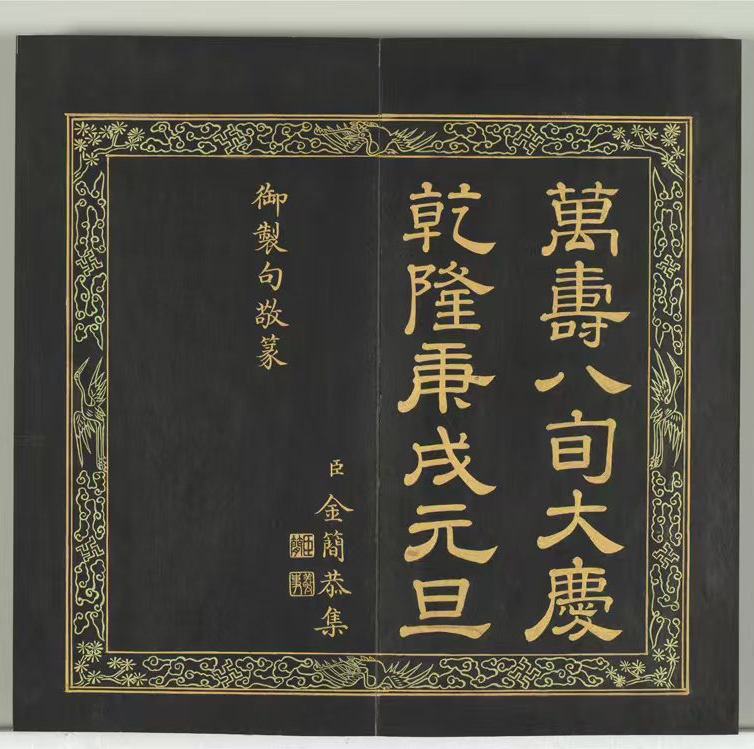 萬壽八旬大慶
乾隆庚戌元旦
臣金簡恭集
御製句敬篆